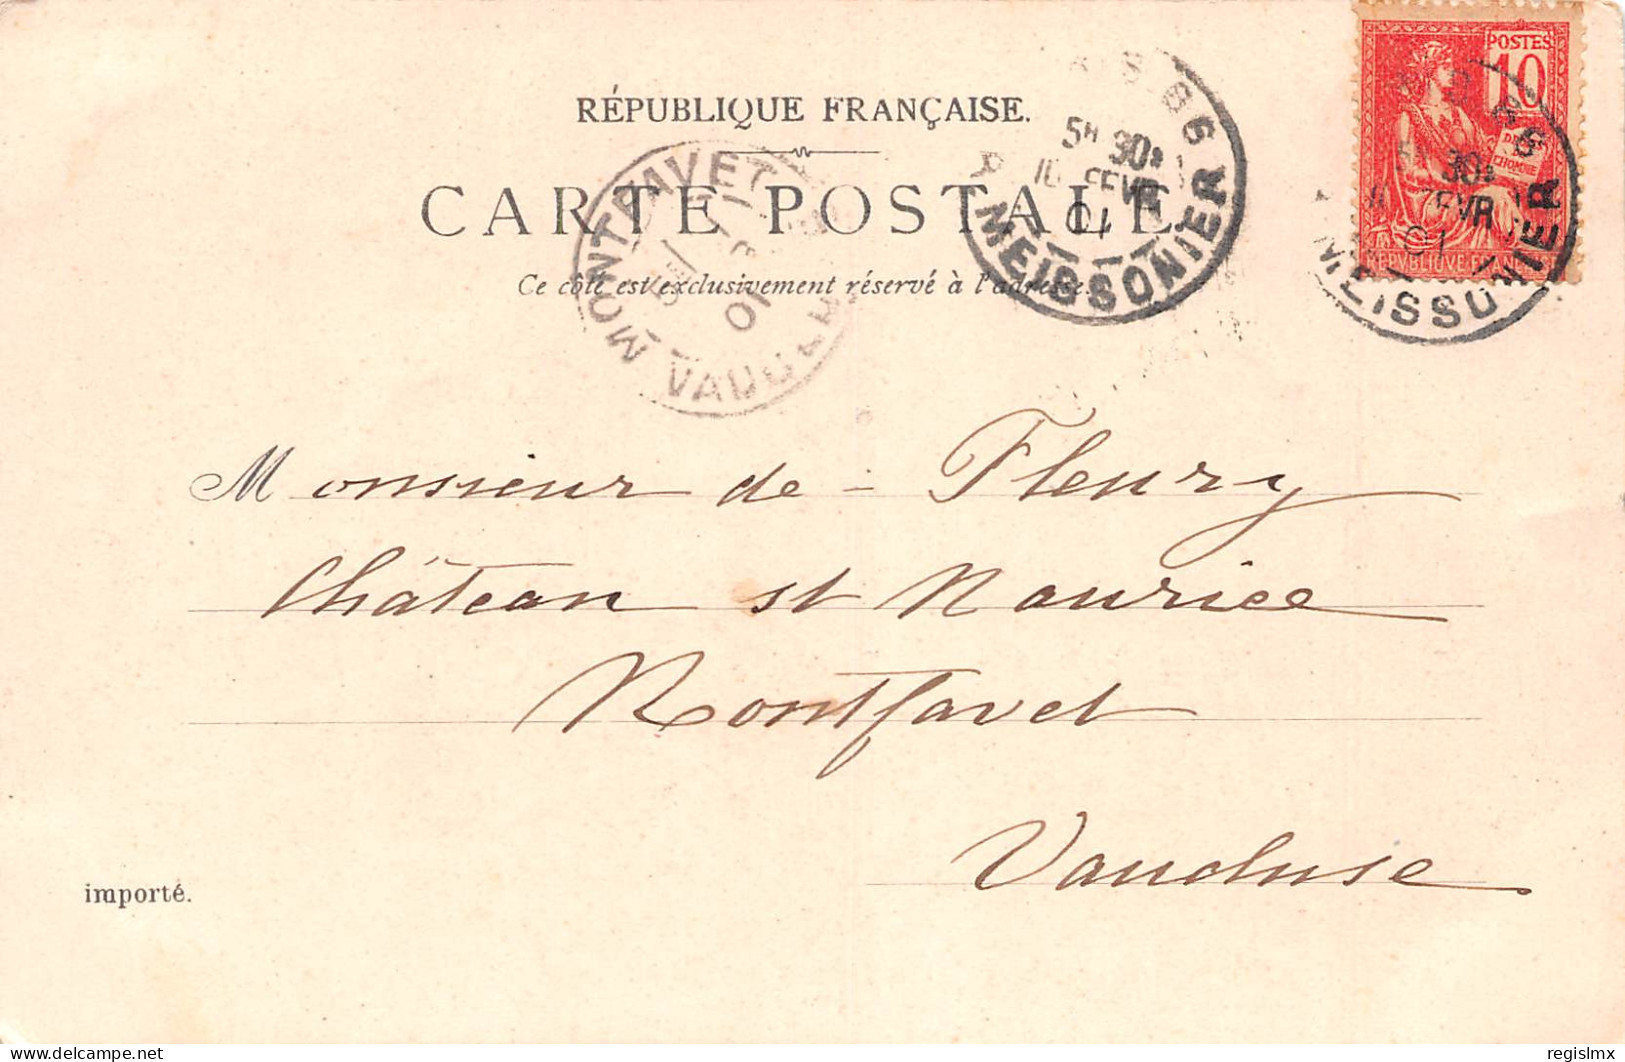 RÉPUBLIQUE FRANÇAISE.
CARTE POSTALE
Ce côté est exclusivement réservé à l'adresse.
POSTES
10
DROITS
DE
L'HOMME
REPUBLIQUE FRANÇAISE
86
5H 30
FEVR
01
MEISSONIER
86
30
FEVR
01
MEISSONIER
MONTFAVET
01
VAUCLUSE
Monsieur de - Fleury
Château st Maurice
Montfavet
Vaucluse
importé.
regislmx